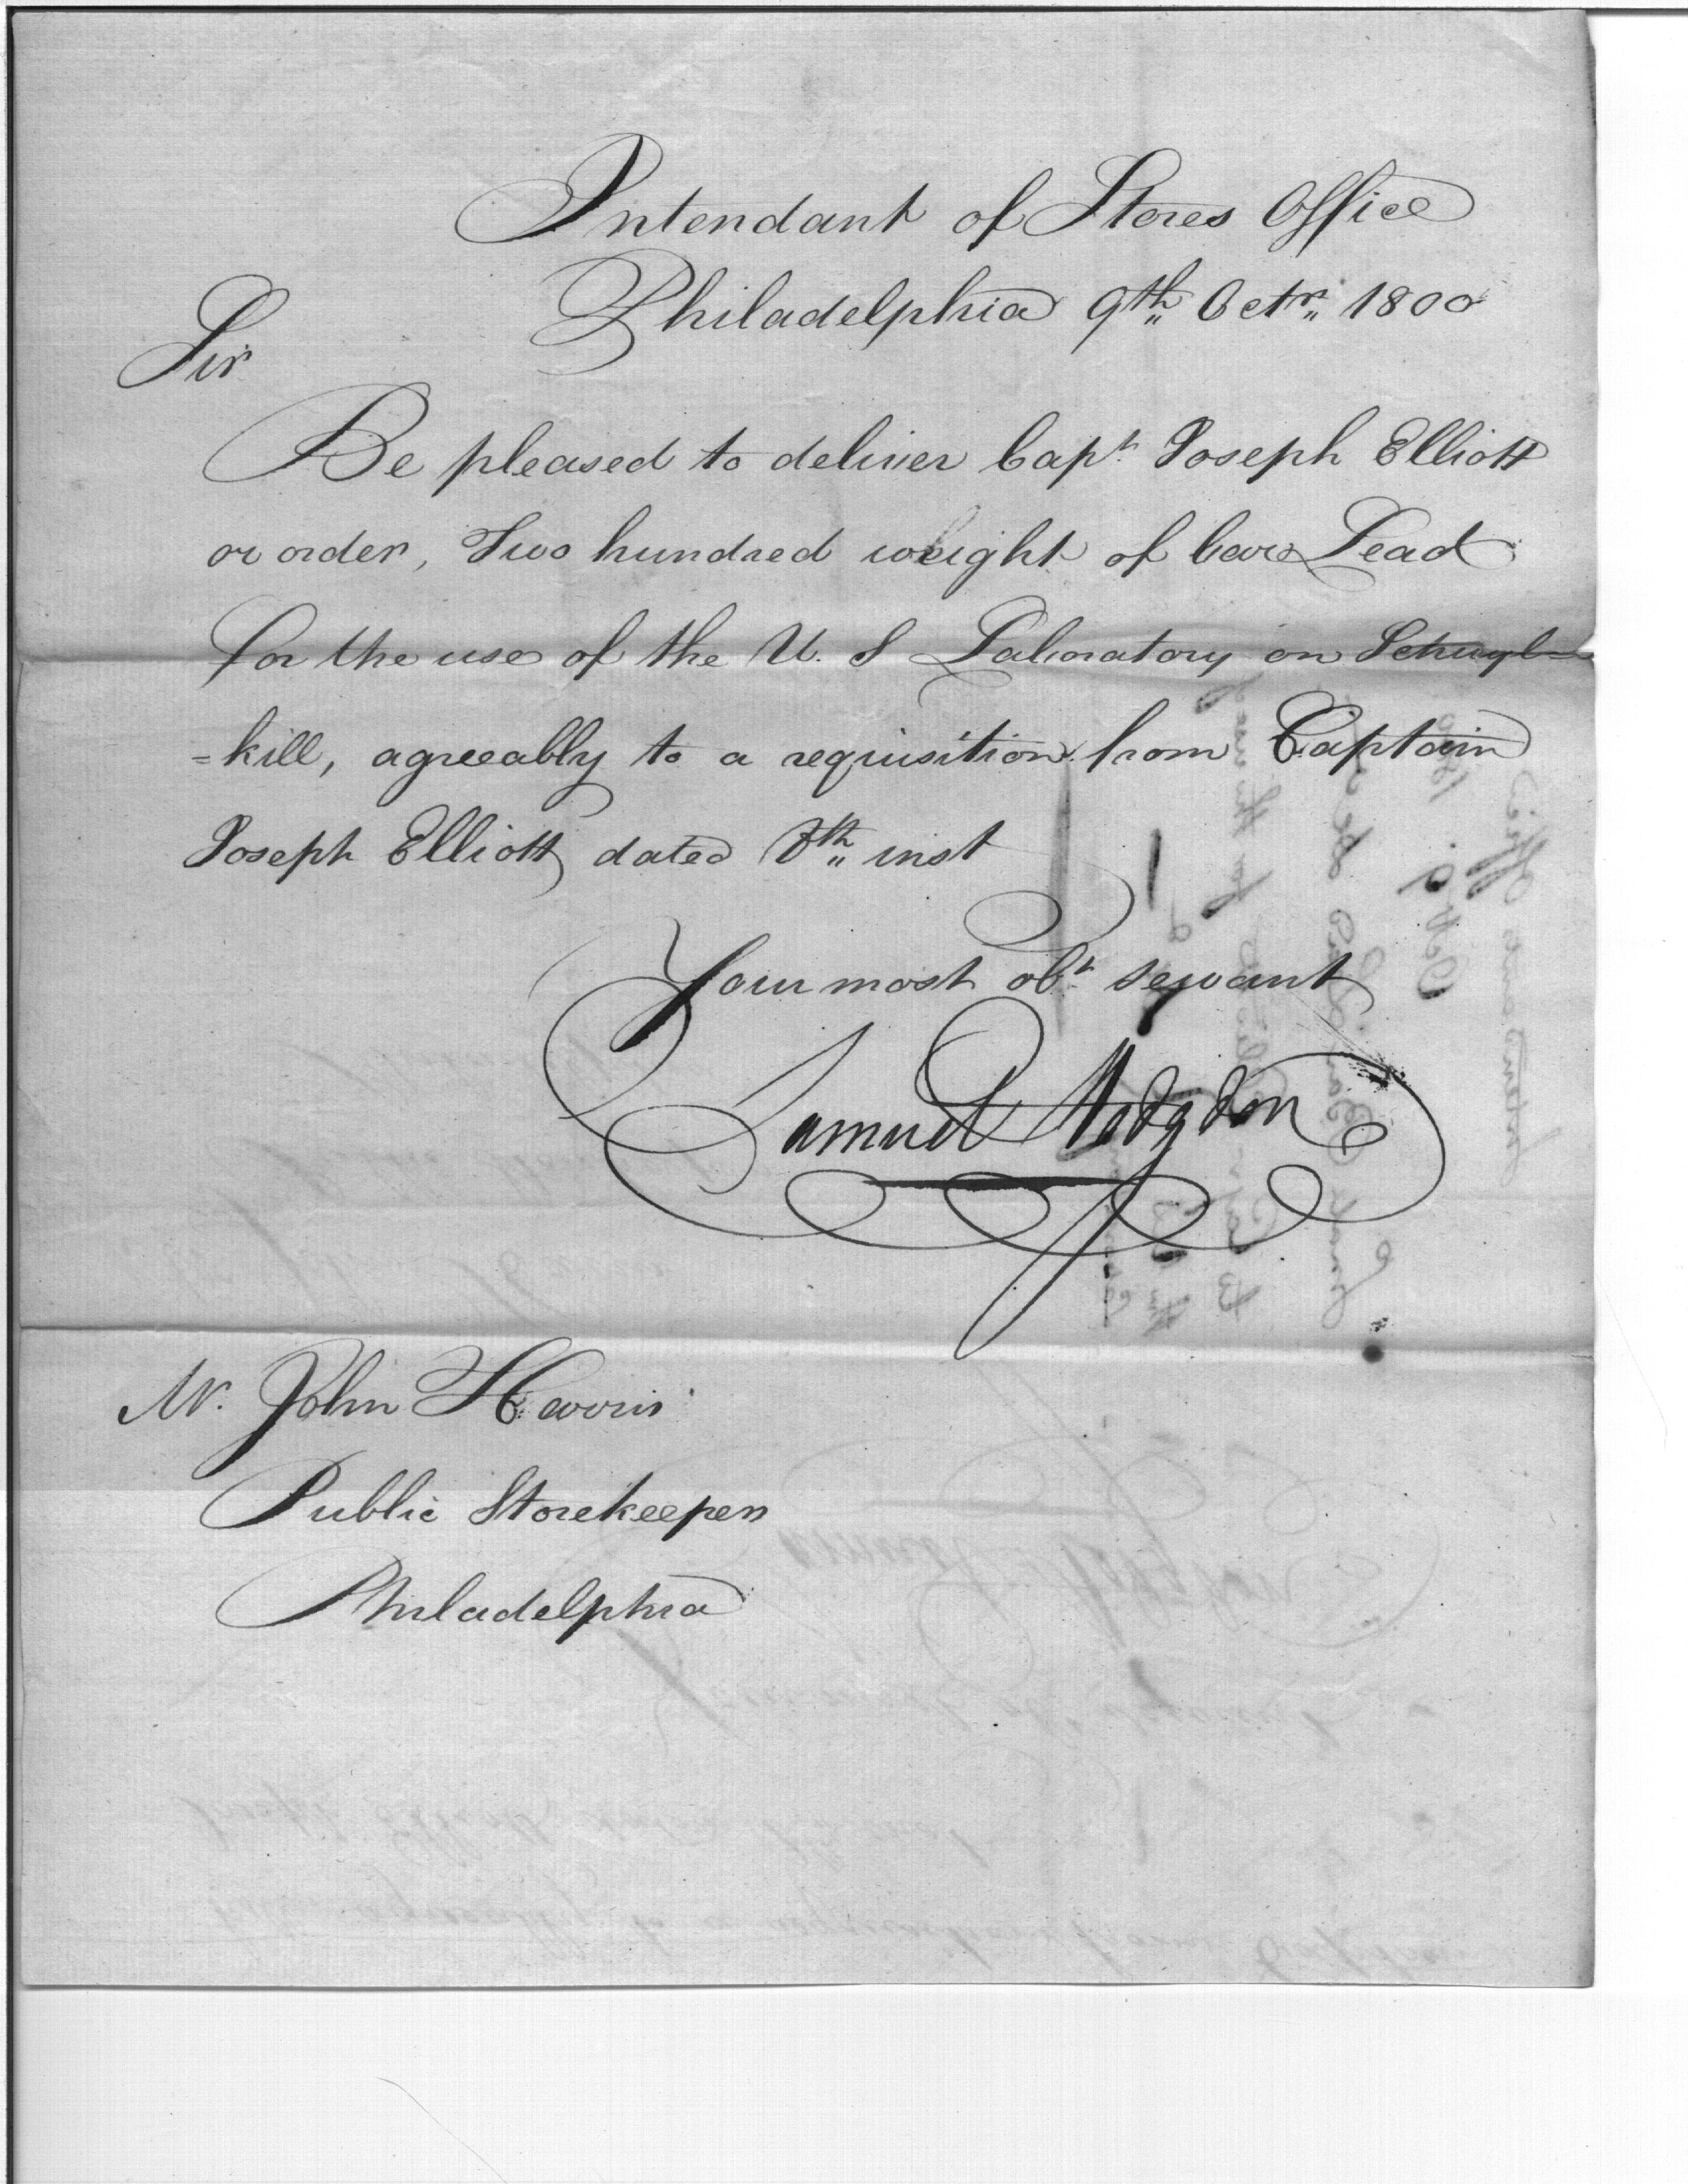 Intendant of Stores Office
Philadelphia 9th Octr. 1800
Sir
Be pleased to deliver Capt. Joseph Elliott
or order, Two hundred weight of bar Lead
for the use of the U. S Laboratory on Schuyl=
=kill, agreeably to a requisition from Captain
Joseph Elliott dated 8th inst
Your most obt. servant
Samuel Hodgdon
Mr. John Harris
Public Storekeeper
Philadelphia